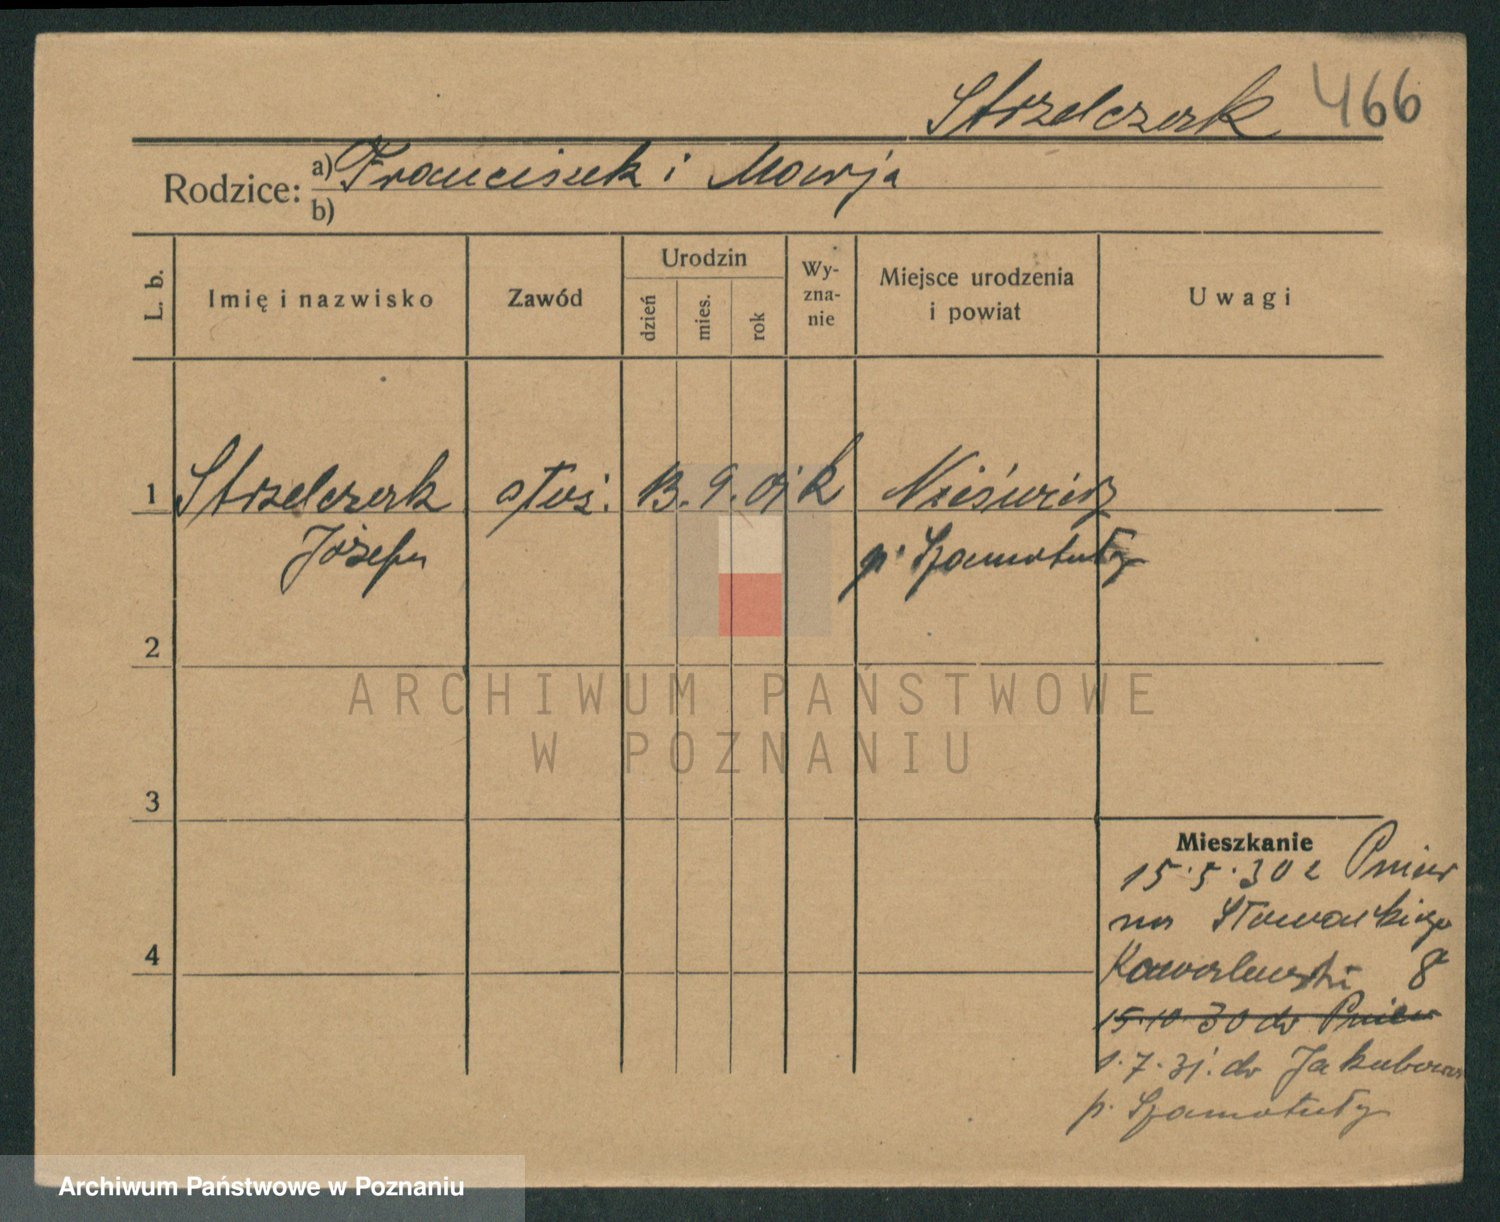 Strzelczak 466
Rodzice: a) Franciszek i Marja
b)
L. b. Imię i nazwisko Zawód Urodzin dzień mies. rok Wy-zna-nie Miejsce urodzenia i powiat Uwagi
1 Strzelczak służ. 13. 9. k
Józefa p. Szamotuły
2
3
4
Mieszkanie
15.5.30 z Pniew
na Słowackiego
8
15.10.30 do Pniew
1.7.31. do Jakubowa
p. Szamotuły
ARCHIWUM PAŃSTWOWE
W POZNANIU
Archiwum Państwowe w Poznaniu